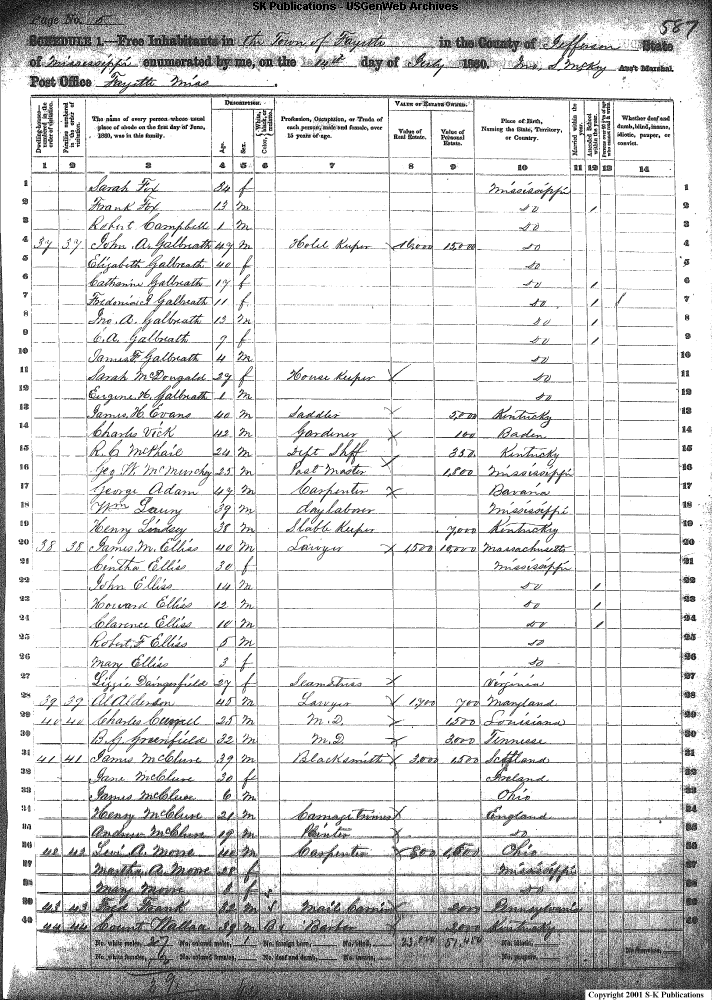 SK Publications - USGenWeb Archives
Page No. 5
587
SCHEDULE 1.—Free Inhabitants in the Town of Fayette in the County of Jefferson State
of Mississippi enumerated by me, on the 10th day of July 1860. Jno. S. McKey Ass't Marshal.
Post Office Fayette Miss.
DESCRIPTION. VALUE OF ESTATE OWNED.
Dwelling-houses—numbered in the order of visitation. Families numbered in the order of visitation. The name of every person whose usual place of abode on the first day of June, 1860, was in this family. Age. Sex. Profession, Occupation, or Trade of each person, male and female, over 15 years of age. Value of Real Estate. Value of Personal Estate. Place of Birth, Naming the State, Territory, or Country. Married within the year. Attended School within the year. Whether deaf and dumb, blind, insane, idiotic, pauper, or convict.
1 2 3 4 5 6 7 8 9 10 11 12 13 14
1 Sarah Fox 34 f Mississippi 1
2 Frank Fox 13 m do / 2
3 Robert Campbell 1 m do 3
4 37 37 John A. Galbreath 47 m Hotel Keeper 16,000 15,000 do 4
5 Elizabeth Galbreath 40 f do 5
6 Catharine Galbreath 17 f do / 6
7 Galbreath 11 f do / / 7
8 Jno. A. Galbreath 13 m do / 8
9 E. A. Galbreath 7 f do / 9
10 James F. Galbreath 4 m do 10
11 Sarah McDougald 27 f House Keeper do 11
12 Eugene H. Galbreath 1 m do 12
13 James H. Evans 40 m Saddler 5,000 Kentucky 13
14 Charles Vick 42 m Gardiner 100 Baden 14
15 R. C. McPhail 24 m Dept Shff 350 Kentucky 15
16 Geo W. McMurchey 25 m Post Master 1,800 Mississippi 16
17 George Adam 47 m Carpenter Bavaria 17
18 Wm Lowry 39 m day laborer Mississippi 18
19 Henry Lindsey 38 m Stable Keeper 7,000 Kentucky 19
20 38 38 James M. Elliss 40 m Lawyer 1,500 10,000 Massachusetts 20
21 Cintha Elliss 30 f Mississippi 21
22 John Elliss 14 m do / 22
23 Howard Elliss 12 m do / 23
24 Clarence Elliss 10 m do / 24
25 Robert F Elliss 5 m do 25
26 Mary Elliss 3 f do 26
27 Lizzie Daingerfield 27 f Seamstress Virginia 27
28 39 39 Al Alderson 45 m Lawyer 1,700 700 Maryland 28
29 40 40 Charles 25 m M.D. 1500 Louisiana 29
30 B. G. Greenfield 32 m M.D. 3,000 Tennesse 30
31 41 41 James McClure 39 m Blacksmith 3,000 1500 Scotland 31
32 Jane McClure 30 f Ireland 32
33 James McClure 6 m Ohio 33
34 Henry McClure 21 m Carriage Trimer England 34
35 Andrew McClure 19 m Painter do 35
36 42 42 Levi A. Moore 40 m Carpenter 800 1,500 Ohio 36
37 Martha A. Moore 28 f Mississippi 37
38 Mary Moore f do 38
39 43 43 Fred Frank 32 m Mail Carrier 2000 Pennsylvania 39
40 44 44 Count Wallace 39 m B Barber 2000 Kentucky 40
No. white males, 27 No. colored males, 1 No. foreign born, No. blind, 23,000 No. idiotic,
No. white females, No. colored females, No. deaf and dumb, No. insane, No. paupers, No. convicts,
39
Copyright 2001 S-K Publications